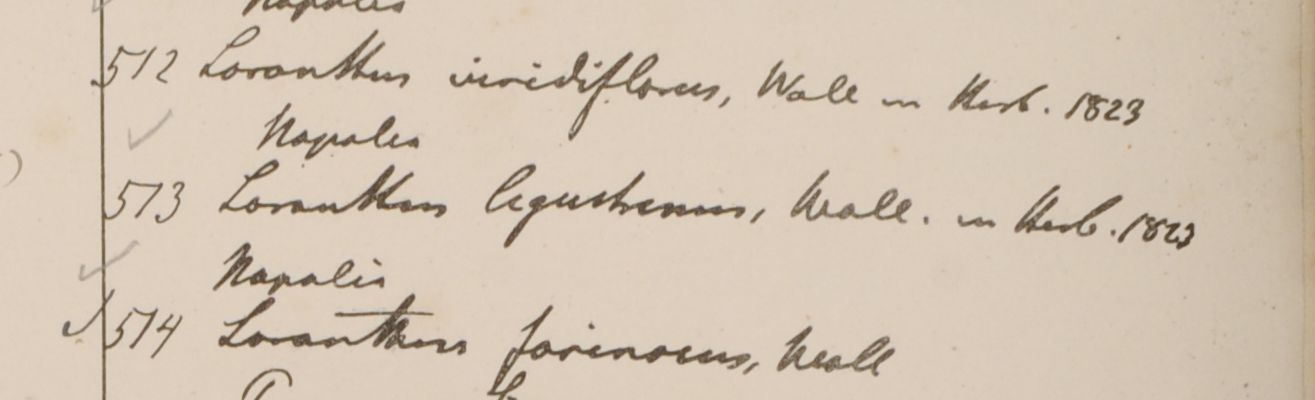 Napalia
512 Loranthus viridiflorus, Wall in Herb. 1823
Napalia
513 Loranthus ligustrinus, Wall. in Herb. 1823
Napalia
514 Loranthus farinosus, Wall